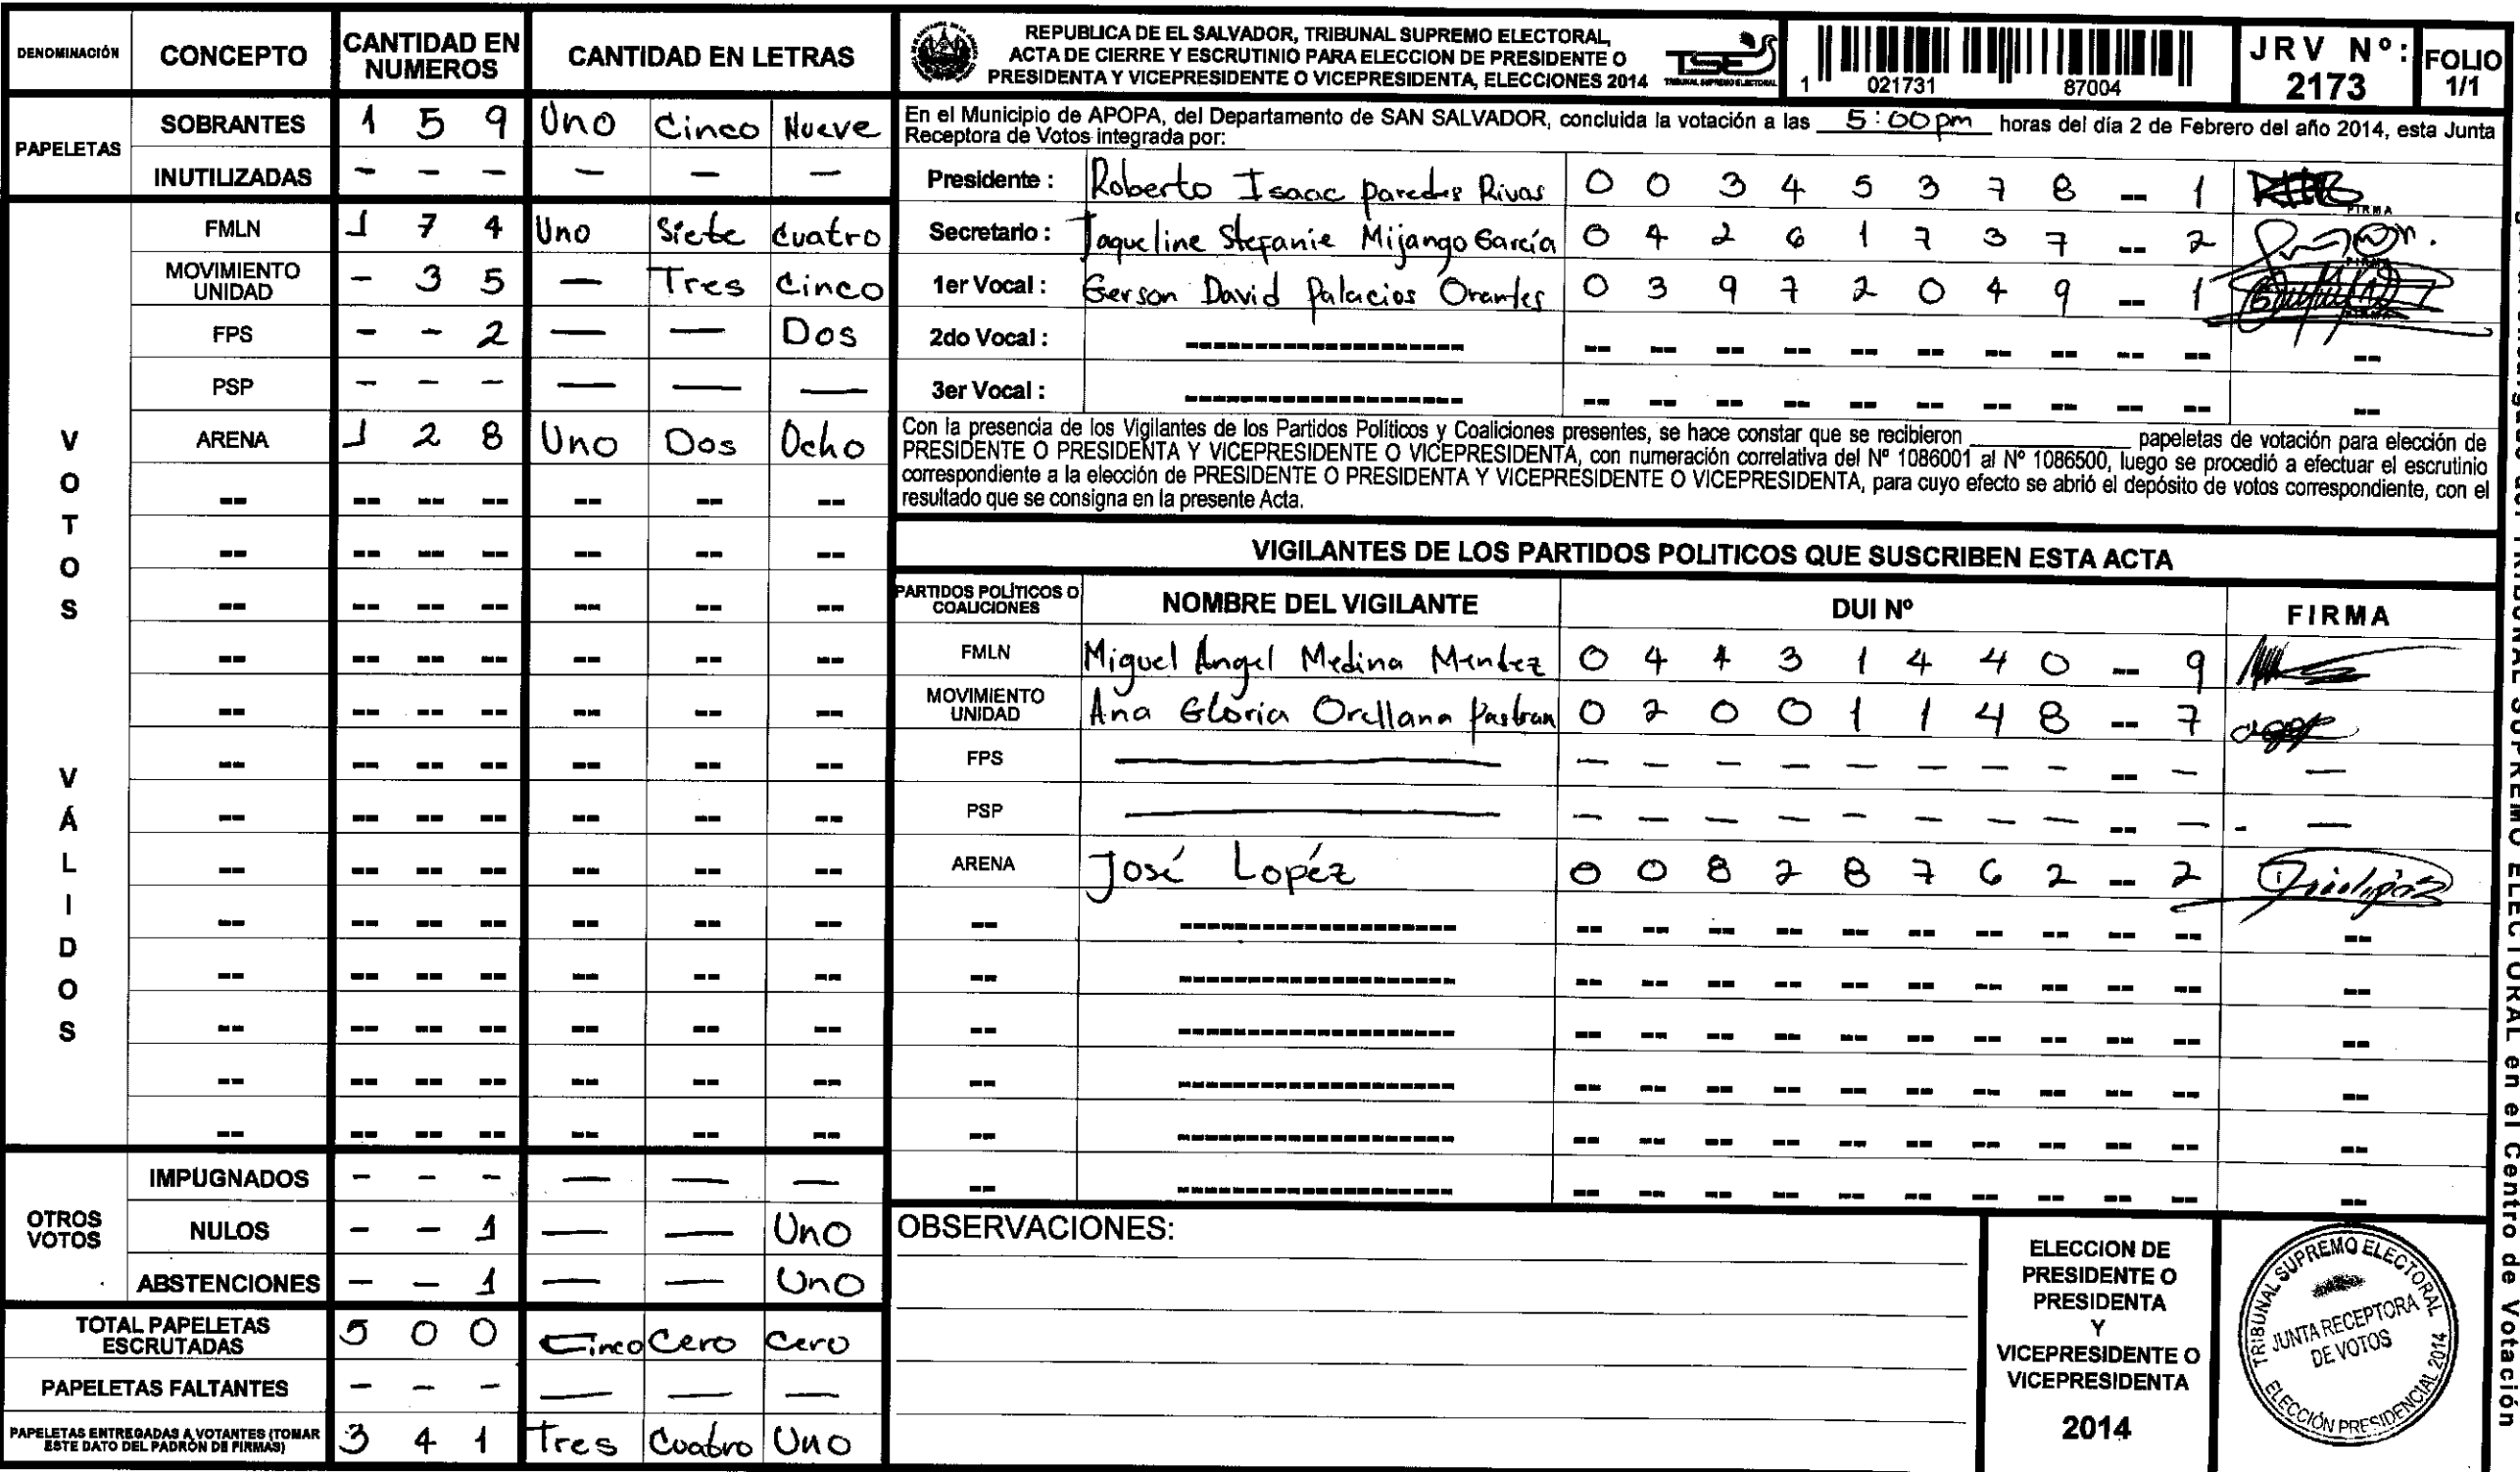 DENOMINACIÓN CONCEPTO CANTIDAD EN NUMEROS CANTIDAD EN LETRAS
PAPELETAS
SOBRANTES 1 5 9 Uno Cinco Nueve
INUTILIZADAS - - - - - -
VOTOS VÁLIDOS
FMLN 1 7 4 Uno Siete Cuatro
MOVIMIENTO UNIDAD - 3 5 - Tres Cinco
FPS - - 2 - - Dos
PSP - - - - - -
ARENA 1 2 8 Uno Dos Ocho
-- -- -- -- -- -- --
-- -- -- -- -- -- --
-- -- -- -- -- -- --
-- -- -- -- -- -- --
-- -- -- -- -- -- --
-- -- -- -- -- -- --
-- -- -- -- -- -- --
-- -- -- -- -- -- --
-- -- -- -- -- -- --
-- -- -- -- -- -- --
-- -- -- -- -- -- --
-- -- -- -- -- -- --
-- -- -- -- -- -- --
OTROS VOTOS
IMPUGNADOS - - - - - -
NULOS - - 1 - - Uno
ABSTENCIONES - - 1 - - Uno
TOTAL PAPELETAS ESCRUTADAS 5 0 0 Cinco Cero Cero
PAPELETAS FALTANTES - - - - - -
PAPELETAS ENTREGADAS A VOTANTES (TOMAR ESTE DATO DEL PADRÓN DE FIRMAS) 3 4 1 Tres Cuatro Uno
REPUBLICA DE EL SALVADOR, TRIBUNAL SUPREMO ELECTORAL,
ACTA DE CIERRE Y ESCRUTINIO PARA ELECCION DE PRESIDENTE O
PRESIDENTA Y VICEPRESIDENTE O VICEPRESIDENTA, ELECCIONES 2014
TSE
TRIBUNAL SUPREMO ELECTORAL
1 021731 87004
JRV Nº:
2173
FOLIO
1/1
En el Municipio de APOPA, del Departamento de SAN SALVADOR, concluida la votación a las 5:00 pm horas del día 2 de Febrero del año 2014, esta Junta
Receptora de Votos integrada por:
Presidente : Roberto Isaac paredes Rivas 0 0 3 4 5 3 7 8 -- 1
FIRMA
Secretario : Jaqueline Stefanie Mijango García 0 4 2 6 1 7 3 7 -- 2
FIRMA
1er Vocal : Gerson David Palacios Orantes 0 3 9 7 2 0 4 9 -- 1
FIRMA
2do Vocal : -------------------- -- -- -- -- -- -- -- -- -- -- --
3er Vocal : -------------------- -- -- -- -- -- -- -- -- -- -- --
Con la presencia de los Vigilantes de los Partidos Políticos y Coaliciones presentes, se hace constar que se recibieron ____________ papeletas de votación para elección de
PRESIDENTE O PRESIDENTA Y VICEPRESIDENTE O VICEPRESIDENTA, con numeración correlativa del Nº 1086001 al Nº 1086500, luego se procedió a efectuar el escrutinio
correspondiente a la elección de PRESIDENTE O PRESIDENTA Y VICEPRESIDENTE O VICEPRESIDENTA, para cuyo efecto se abrió el depósito de votos correspondiente, con el
resultado que se consigna en la presente Acta.
VIGILANTES DE LOS PARTIDOS POLITICOS QUE SUSCRIBEN ESTA ACTA
PARTIDOS POLÍTICOS O COALICIONES NOMBRE DEL VIGILANTE DUI Nº FIRMA
FMLN Miguel Angel Medina Mendez 0 4 4 3 1 4 4 0 -- 9
MOVIMIENTO UNIDAD Ana Gloria Orellana Pastran 0 2 0 0 1 1 4 8 -- 7
FPS - - - - - - - - - -- - -
PSP - - - - - - - - - -- - -
ARENA José Lopéz 0 0 8 2 8 7 6 2 -- 2
-- -------------------- -- -- -- -- -- -- -- -- -- -- --
-- -------------------- -- -- -- -- -- -- -- -- -- -- --
-- -------------------- -- -- -- -- -- -- -- -- -- -- --
-- -------------------- -- -- -- -- -- -- -- -- -- -- --
-- -------------------- -- -- -- -- -- -- -- -- -- -- --
-- -------------------- -- -- -- -- -- -- -- -- -- -- --
OBSERVACIONES:
ELECCION DE
PRESIDENTE O
PRESIDENTA
Y
VICEPRESIDENTE O
VICEPRESIDENTA
2014
TRIBUNAL SUPREMO ELECTORAL
JUNTA RECEPTORA
DE VOTOS
ELECCIÓN PRESIDENCIAL 2014
TRIBUNAL SUPREMO ELECTORAL en el Centro de Votación